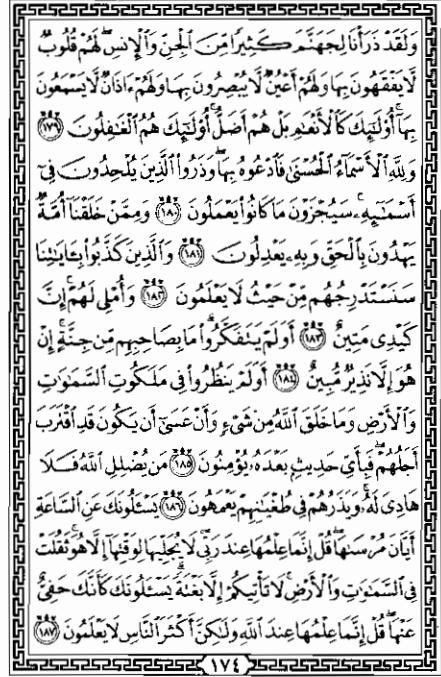 وَلَقَدْ ذَرَأْنَا لِجَهَنَّمَ كَثِيرًا مِّنَ ٱلْجِنِّ وَٱلْإِنسِ ۖ لَهُمْ قُلُوبٌ
لَّا يَفْقَهُونَ بِهَا وَلَهُمْ أَعْيُنٌ لَّا يُبْصِرُونَ بِهَا وَلَهُمْ ءَاذَانٌ لَّا يَسْمَعُونَ
بِهَآ ۚ أُو۟لَٰٓئِكَ كَٱلْأَنْعَٰمِ بَلْ هُمْ أَضَلُّ ۚ أُو۟لَٰٓئِكَ هُمُ ٱلْغَٰفِلُونَ ١٧٩
وَلِلَّهِ ٱلْأَسْمَآءُ ٱلْحُسْنَىٰ فَٱدْعُوهُ بِهَا ۖ وَذَرُوا۟ ٱلَّذِينَ يُلْحِدُونَ فِىٓ
أَسْمَٰٓئِهِۦ ۚ سَيُجْزَوْنَ مَا كَانُوا۟ يَعْمَلُونَ ١٨٠ وَمِمَّنْ خَلَقْنَآ أُمَّةٌ
يَهْدُونَ بِٱلْحَقِّ وَبِهِۦ يَعْدِلُونَ ١٨١ وَٱلَّذِينَ كَذَّبُوا۟ بِـَٔايَٰتِنَا
سَنَسْتَدْرِجُهُم مِّنْ حَيْثُ لَا يَعْلَمُونَ ١٨٢ وَأُمْلِى لَهُمْ ۚ إِنَّ
كَيْدِى مَتِينٌ ١٨٣ أَوَلَمْ يَتَفَكَّرُوا۟ ۗ مَا بِصَاحِبِهِم مِّن جِنَّةٍ ۚ إِنْ
هُوَ إِلَّا نَذِيرٌ مُّبِينٌ ١٨٤ أَوَلَمْ يَنظُرُوا۟ فِى مَلَكُوتِ ٱلسَّمَٰوَٰتِ
وَٱلْأَرْضِ وَمَا خَلَقَ ٱللَّهُ مِن شَىْءٍ وَأَنْ عَسَىٰٓ أَن يَكُونَ قَدِ ٱقْتَرَبَ
أَجَلُهُمْ ۖ فَبِأَىِّ حَدِيثٍۭ بَعْدَهُۥ يُؤْمِنُونَ ١٨٥ مَن يُضْلِلِ ٱللَّهُ فَلَا
هَادِىَ لَهُۥ ۚ وَيَذَرُهُمْ فِى طُغْيَٰنِهِمْ يَعْمَهُونَ ١٨٦ يَسْـَٔلُونَكَ عَنِ ٱلسَّاعَةِ
أَيَّانَ مُرْسَىٰهَا ۖ قُلْ إِنَّمَا عِلْمُهَا عِندَ رَبِّى ۖ لَا يُجَلِّيهَا لِوَقْتِهَآ إِلَّا هُوَ ۚ ثَقُلَتْ
فِى ٱلسَّمَٰوَٰتِ وَٱلْأَرْضِ ۚ لَا تَأْتِيكُمْ إِلَّا بَغْتَةً ۗ يَسْـَٔلُونَكَ كَأَنَّكَ حَفِىٌّ
عَنْهَا ۖ قُلْ إِنَّمَا عِلْمُهَا عِندَ ٱللَّهِ وَلَٰكِنَّ أَكْثَرَ ٱلنَّاسِ لَا يَعْلَمُونَ ١٨٧
١٧٤